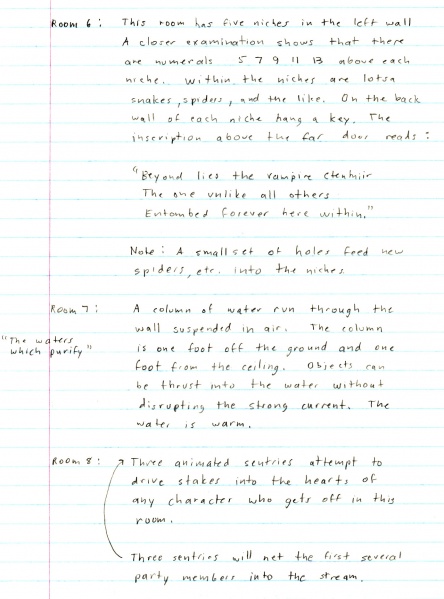 Room 6: This room has five niches in the left wall
A closer examination shows that there
are numerals 5 7 9 11 13 above each
niche. Within the niches are lotsa
snakes, spiders, and the like. On the back
wall of each niche hang a key. The
inscription above the far door reads:
"Beyond lies the vampire Ctenmiir
The one unlike all others
Entombed forever here within."
Note: A small set of holes feed new
spiders, etc. into the niches
Room 7: A column of water run through the
wall suspended in air. The column
"The waters
which purify"
is one foot off the ground and one
foot from the ceiling. Objects can
be thrust into the water without
disrupting the strong current. The
water is warm.
Room 8: Three animated sentries attempt to
drive stakes into the hearts of
any character who gets off in this
room.
Three sentries will net the first several
party members into the stream.